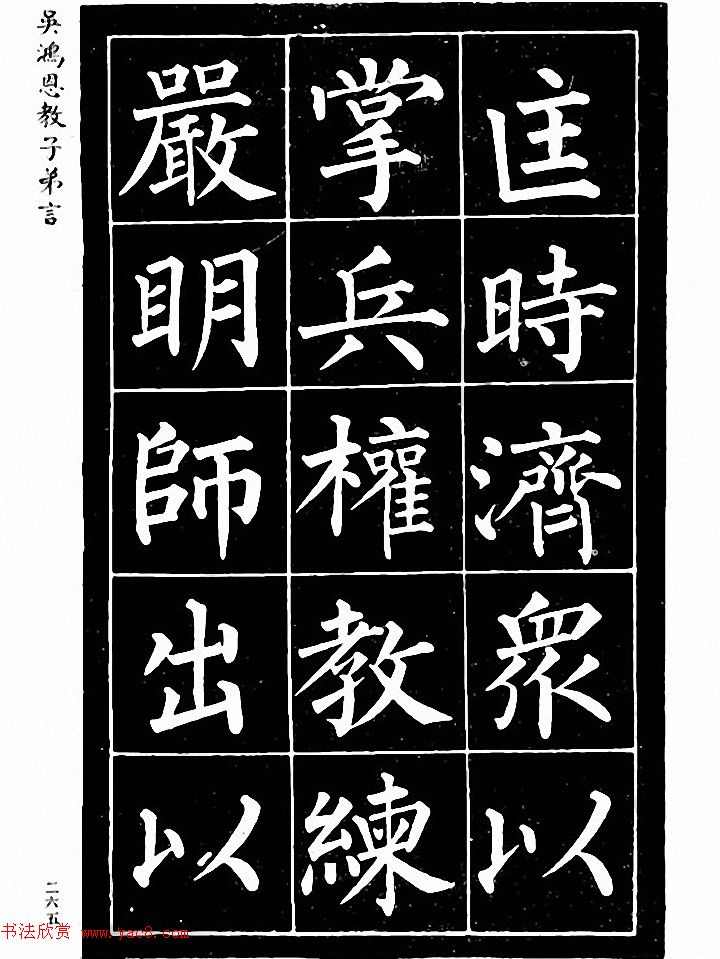 匡時濟眾以
掌兵權教練
嚴眀師出以
吳鴻恩教子弟言
二六五
书法欣赏 www.yac8.com